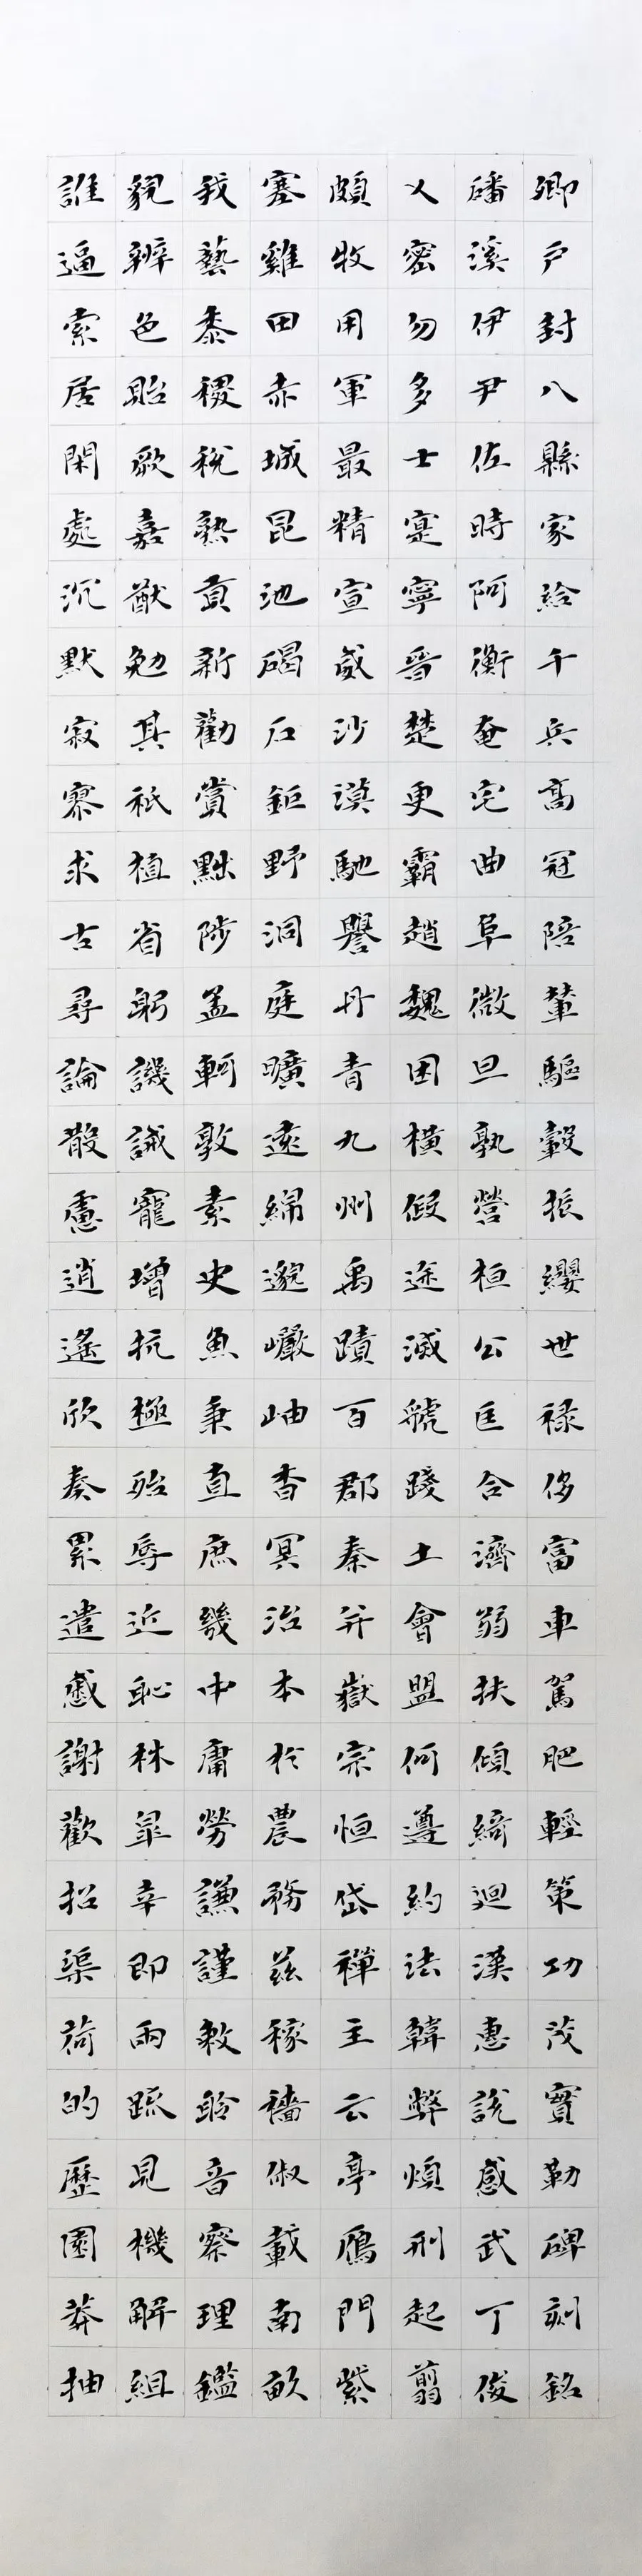 卿户封八縣家給千兵高冠陪輦驅轂振纓世禄侈富車駕肥輕策功茂實勒碑刻銘
磻溪伊尹佐時阿衡奄宅曲阜微旦孰營桓公匡合濟弱扶傾綺迴漢惠說感武丁俊
乂密勿多士寔寧晉楚更霸趙魏困橫假途滅虢踐土會盟何遵約法韓弊煩刑起翦
頗牧用軍最精宣威沙漠馳譽丹青九州禹蹟百郡秦并嶽宗恒岱禪主云亭鴈門紫
塞雞田赤城昆池碣石鉅野洞庭曠遠綿邈巖岫杳冥治本於農務茲稼穡俶載南畝
我藝黍稷稅熟貢新勸賞黜陟孟軻敦素史魚秉直庶幾中庸勞謙謹敕聆音察理鑑
貌辨色貽厥嘉猷勉其祗植省躬譏誡寵增抗極殆辱近恥林皐幸即兩疏見機解組
誰逼索居閑處沉默寂寥求古尋論散慮逍遙欣奏累遣慼謝歡招渠荷的歷園莽抽